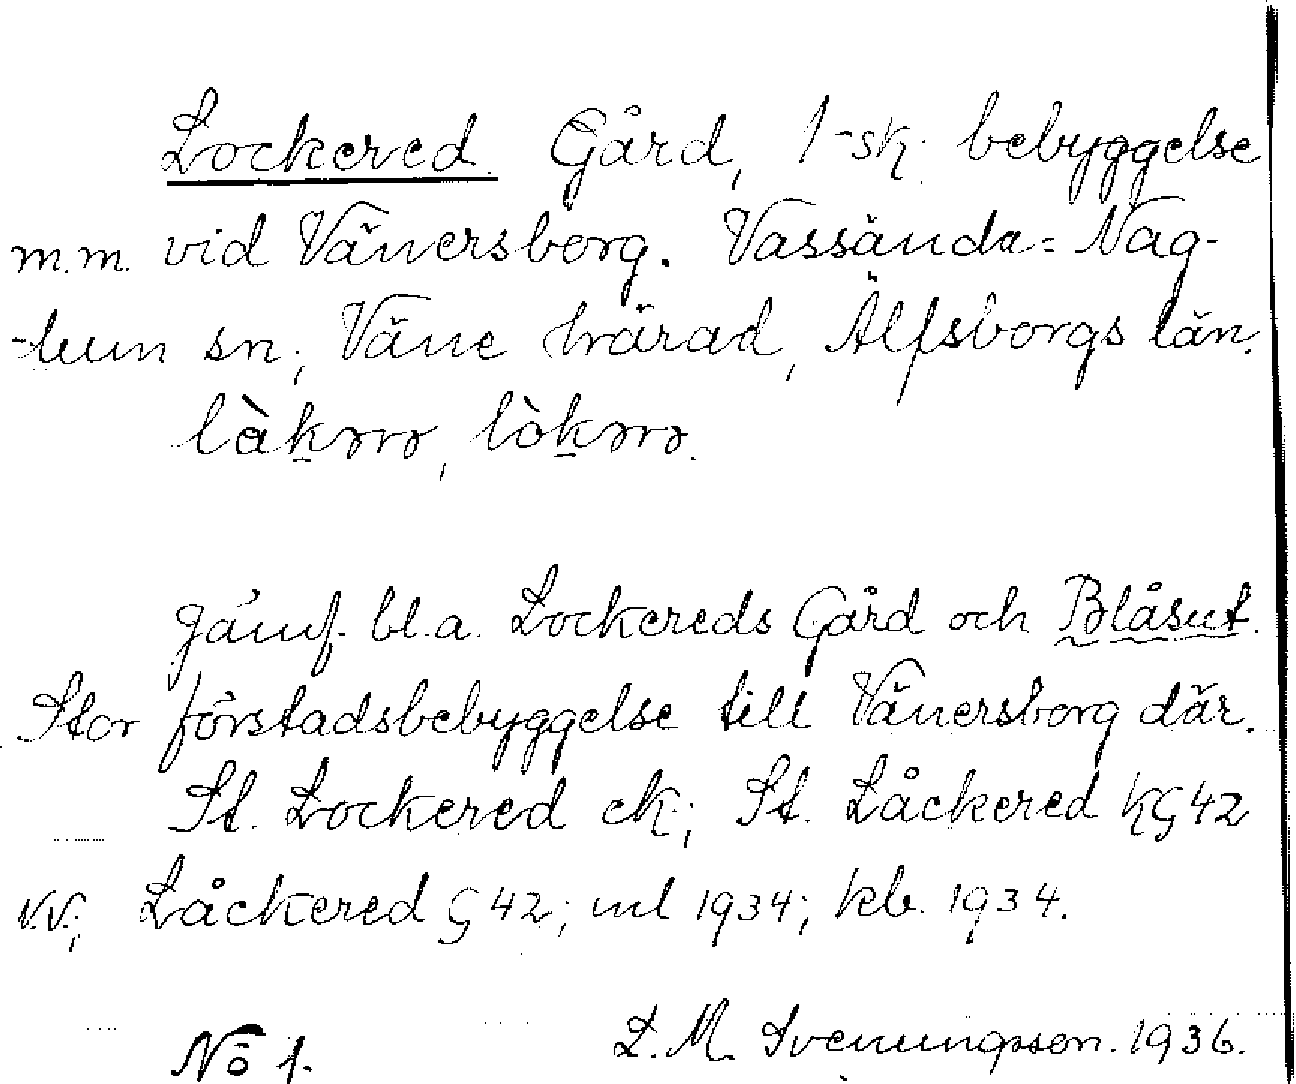 Lockered Gård, 1-sk. bebyggelse
m.m. vid Vänersborg. Vassända-Nag-
-lum sn; Väne härad, Älfsborgs län.
làkərə, lòkərə.
Jämf. bl.a. Lockereds Gård och Blåsut.
Stor förstadsbebyggelse till Vänersborg där.
St. Lockered ek; St. Låckered kG42
v.v; Låckered G42; ml 1934; kb. 1934.
No 1. L. M. Svenungsson. 1936.